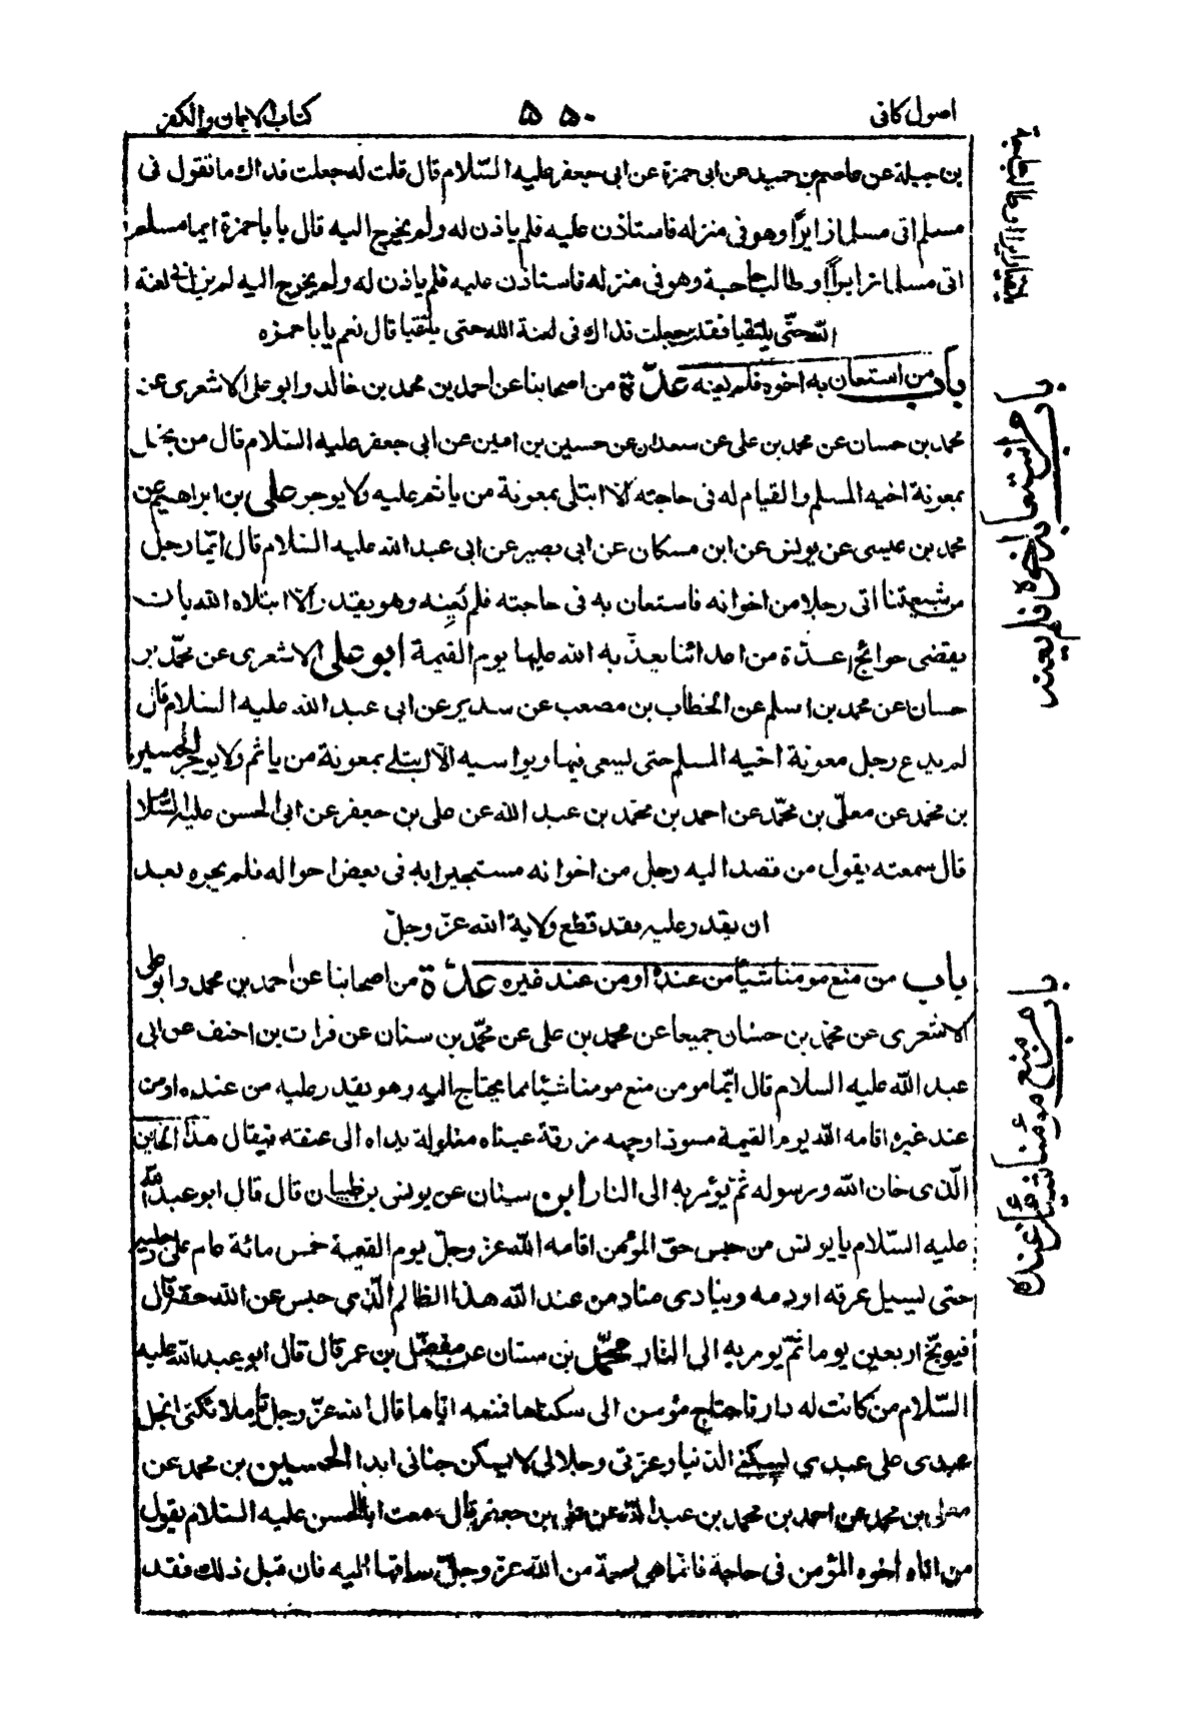 اصول كافى
٥٥٠
كتاب الايمان والكفر
بن جبلة عن عاصم بن حميد عن ابى حمزة عن ابى جعفر عليه السّلام قال قلت له جعلت فداك ما تقول فى
مسلم اتى مسلما زايرًا وهو فى منزله فاستاذن عليه فلم ياذن له ولم يخرج اليه قال يا باحمزة ايما مسلم
اتى مسلما زايراً او طالب حاجة وهو فى منزله فاستاذن عليه فلم ياذن له ولم يخرج اليه لم يزل فى لعنة
اللّه حتّى يلتقيا فقلت جعلت فداك فى لعنة الله حتى يلتقيا قال نعم يا باحمزه
باب من استعان به اخوه فلم يعنه عدّة من اصحابنا عن احمد بن محمد بن خالد وابو على الاشعرى عن
محمد بن حسان عن محمد بن على عن سعدان عن حسين بن امين عن ابى جعفر عليه السّلام قال من بخل
بمعونة اخيه المسلم والقيام له فى حاجته الّا ابتلى بمعونة من ياثم عليه ولا يوجر على بن ابراهيم عن
محمد بن عيسى عن يونس عن ابن مسكان عن ابى بصير عن ابى عبد الله عليه السّلام قال ايّما رجل
من شيعتنا اتى رجلا من اخوانه فاستعان به فى حاجته فلم يُعِنه وهو يقدر الّا ابتلاه الله بان
يقضى حوائج عدّة من اعدائنا يعذّبه الله عليها يوم القيمة ابو على الاشعرى عن محمّد بن
حسان عن محمد بن اسلم عن الخطاب بن مصعب عن سدير عن ابى عبد الله عليه السّلام قال
لم يدع رجل معونة اخيه المسلم حتى يسعى فيها ويواسيه الّا ابتلى بمعونة من ياثم ولا يوجر الحسين
بن محمد عن معلّى بن محمّد عن احمد بن محمّد بن عبد الله عن على بن جعفر عن ابى الحسن عليه السّلام
قال سمعته يقول من قصد اليه رجل من اخوانه مستجيرا به فى بعض احواله فلم يجره بعد
ان يقدر عليه فقد قطع ولاية الله عزّ وجلّ
باب من منع مومنا شيئا من عنده او من عند غيره عدّة من اصحابنا عن احمد بن محمد وابو على
الاشعرى عن محمّد بن حسّان جميعا عن محمد بن على عن محمّد بن سنان عن فرات بن احنف عن ابى
عبد اللّه عليه السلام قال ايّما مومن منع مومنا شيئا مما يحتاج اليه وهو يقدر عليه من عنده او من
عند غيره اقامه اللّه يوم القيمة مسودّا وجهه مزرقة عيناه مغلولة يداه الى عنقه فيقال هذا الخاين
الّذى خان اللّه ورسوله ثمّ يؤمر به الى النار ابن سنان عن يونس بن ظبيان قال قال ابو عبد اللّه
عليه السّلام يا يونس من حبس حق المؤمن اقامه اللّه عز وجلّ يوم القيمة خمس مائة عام على رجليه
حتى يسيل عرقه او دمه وينادى مناد من عند اللّه هذا الظالم الّذي حبس عن اللّه حقه قال
فيوبّخ اربعين يوما ثمّ يومر به الى النار محمّد بن سنان عن مفضّل بن عمر قال قال ابو عبد اللّه عليه
السّلام من كانت له دار فاحتاج مؤمن الى سكناها فمنعه ايّاها قال الله عزّ وجل يا ملائكتى ابخل
عبدى على عبدي بسكنى الدّنيا وعزتى وجلالى لا يسكن جنانى ابدا الحسين بن محمد عن
معلى بن محمد عن احمد بن محمد بن عبد اللّه عن على بن جعفر قال سمعت ابا الحسن عليه السّلام يقول
من اتاه اخوه المؤمن فى حاجة فانما هى رحمة من اللّه عزّ وجلّ ساقها اليه فان قبل ذلك فقد
باب من استعان به اخوه فلم يعنه
باب من منع مومنا شيئا من عنده